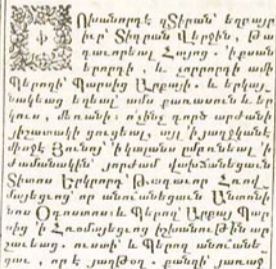 Ոխանորդէ զՏիրան՝ եղբայր
իւր՝ Տիգրան Վերջին, Թա
գաւորեալ Հայոց. ՚ի քսան
երորդի, և չորրորդի ամի
Պերոզի՝ Պարսից Արքայի. և երկայ
նակեաց եղեալ՝ ամս քառասուն և եր
կուս, մեռանի. ո՛չինչ գործ արժանի
յիշատակի ցուցեալ. այլ ՚ի
միոջէ Յունոյ՝ ՚ի կալանս ըմբռնեալ ՚ի
ժամանակին՝ յորժամ վախճանեցաւ
Տիտոս Երկրորդ՝ Թագաւոր Հռով
մայեցւոց՝ որ անուանեցաւ Անտոնի
նոս Օգոստոս: և Պերոզ՝ Արքայ Պար
սից՝ ՚ի Հռոմայեցւոց իշխանութիւն ար
շաւեաց. ուստի՝ և Պերոզ անուանե
ցաւ, որ է յաղթօղ. քանզի յառաջ